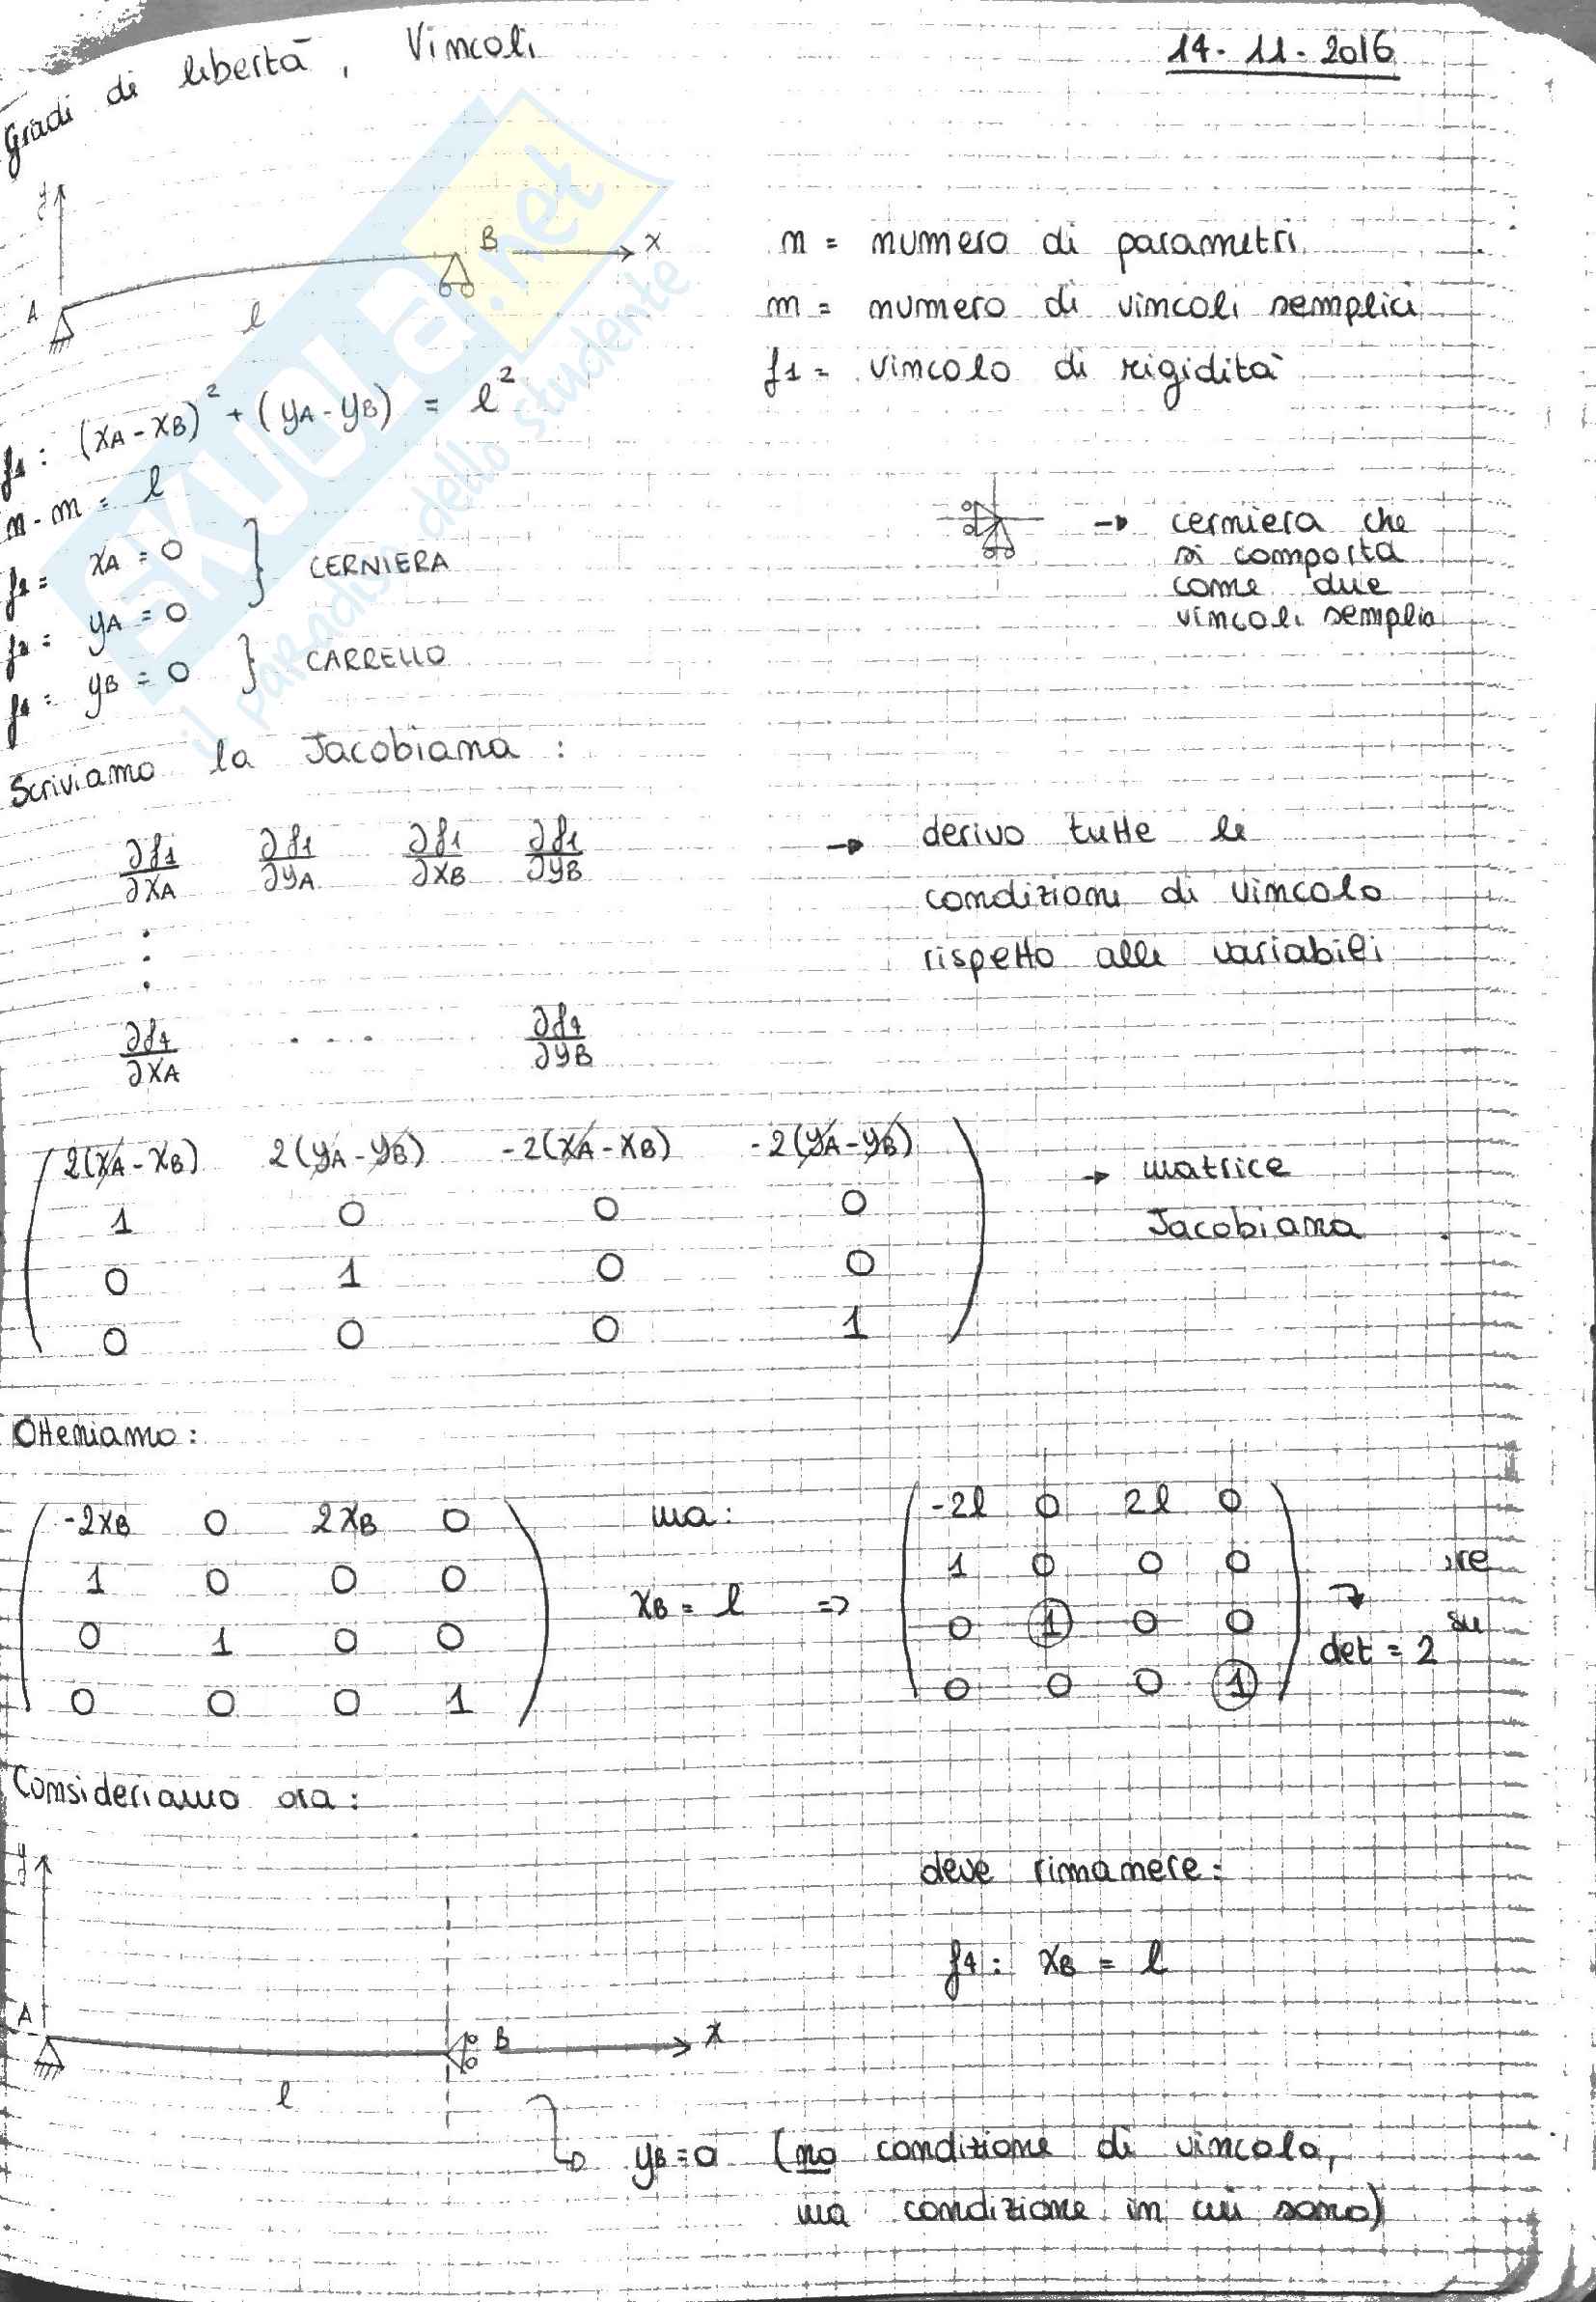 Gradi di libertà, Vincoli
14-11-2016
y
B
x
A
l
n = numero di parametri
m = numero di vincoli semplici
f1 = vincolo di rigidità
f1 : (xA - xB)² + (yA - yB) = l²
n - m = l
xA = 0
yA = 0
} CERNIERA
yB = 0 } CARRELLO
→ cerniera che
si comporta
come due
vincoli semplici
Scriviamo la Jacobiana :
∂f1/∂xA ∂f1/∂yA ∂f1/∂xB ∂f1/∂yB
⋮
∂f4/∂xA . . . . ∂f4/∂yB
→ derivo tutte le
condizioni di vincolo
rispetto alle variabili
2(xA - xB) 2(yA - yB) -2(xA - xB) -2(yA - yB)
1 0 0 0
0 1 0 0
0 0 0 1
→ matrice
Jacobiana
Otteniamo :
-2xB 0 2xB 0
1 0 0 0
0 1 0 0
0 0 0 1
ma :
xB = l ⇒
-2l 0 2l 0
1 0 0 0
0 1 0 0
0 0 0 1
det = 2
re
su
Consideriamo ora :
y
A
B
x
l
deve rimanere :
f4 : xB = l
yB = 0 (no condizione di vincolo,
ma condizione in cui sono)
SKUOLA.net
il paradiso dello studente